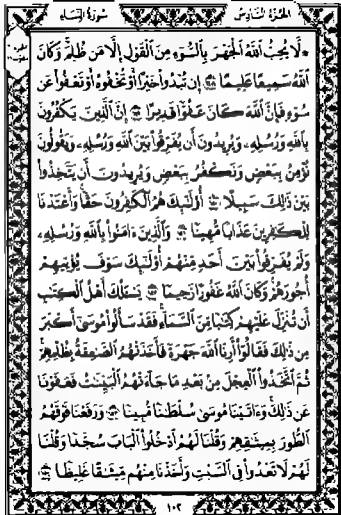 الجزء السادس سورة النساء
۞ لَّا يُحِبُّ ٱللَّهُ ٱلْجَهْرَ بِٱلسُّوٓءِ مِنَ ٱلْقَوْلِ إِلَّا مَن ظُلِمَ وَكَانَ
ٱللَّهُ سَمِيعًا عَلِيمًا ١٤٨ إِن تُبْدُوا۟ خَيْرًا أَوْ تُخْفُوهُ أَوْ تَعْفُوا۟ عَن
سُوٓءٍ فَإِنَّ ٱللَّهَ كَانَ عَفُوًّا قَدِيرًا ١٤٩ إِنَّ ٱلَّذِينَ يَكْفُرُونَ
بِٱللَّهِ وَرُسُلِهِۦ وَيُرِيدُونَ أَن يُفَرِّقُوا۟ بَيْنَ ٱللَّهِ وَرُسُلِهِۦ وَيَقُولُونَ
نُؤْمِنُ بِبَعْضٍ وَنَكْفُرُ بِبَعْضٍ وَيُرِيدُونَ أَن يَتَّخِذُوا۟
بَيْنَ ذَٰلِكَ سَبِيلًا ١٥٠ أُو۟لَـٰٓئِكَ هُمُ ٱلْكَـٰفِرُونَ حَقًّا وَأَعْتَدْنَا
لِلْكَـٰفِرِينَ عَذَابًا مُّهِينًا ١٥١ وَٱلَّذِينَ ءَامَنُوا۟ بِٱللَّهِ وَرُسُلِهِۦ
وَلَمْ يُفَرِّقُوا۟ بَيْنَ أَحَدٍ مِّنْهُمْ أُو۟لَـٰٓئِكَ سَوْفَ يُؤْتِيهِمْ
أُجُورَهُمْ وَكَانَ ٱللَّهُ غَفُورًا رَّحِيمًا ١٥٢ يَسْـَٔلُكَ أَهْلُ ٱلْكِتَـٰبِ
أَن تُنَزِّلَ عَلَيْهِمْ كِتَـٰبًا مِّنَ ٱلسَّمَآءِ فَقَدْ سَأَلُوا۟ مُوسَىٰٓ أَكْبَرَ
مِن ذَٰلِكَ فَقَالُوٓا۟ أَرِنَا ٱللَّهَ جَهْرَةً فَأَخَذَتْهُمُ ٱلصَّـٰعِقَةُ بِظُلْمِهِمْ
ثُمَّ ٱتَّخَذُوا۟ ٱلْعِجْلَ مِنۢ بَعْدِ مَا جَآءَتْهُمُ ٱلْبَيِّنَـٰتُ فَعَفَوْنَا
عَن ذَٰلِكَ وَءَاتَيْنَا مُوسَىٰ سُلْطَـٰنًا مُّبِينًا ١٥٣ وَرَفَعْنَا فَوْقَهُمُ
ٱلطُّورَ بِمِيثَـٰقِهِمْ وَقُلْنَا لَهُمُ ٱدْخُلُوا۟ ٱلْبَابَ سُجَّدًا وَقُلْنَا
لَهُمْ لَا تَعْدُوا۟ فِى ٱلسَّبْتِ وَأَخَذْنَا مِنْهُم مِّيثَـٰقًا غَلِيظًا ١٥٤
١٠٢